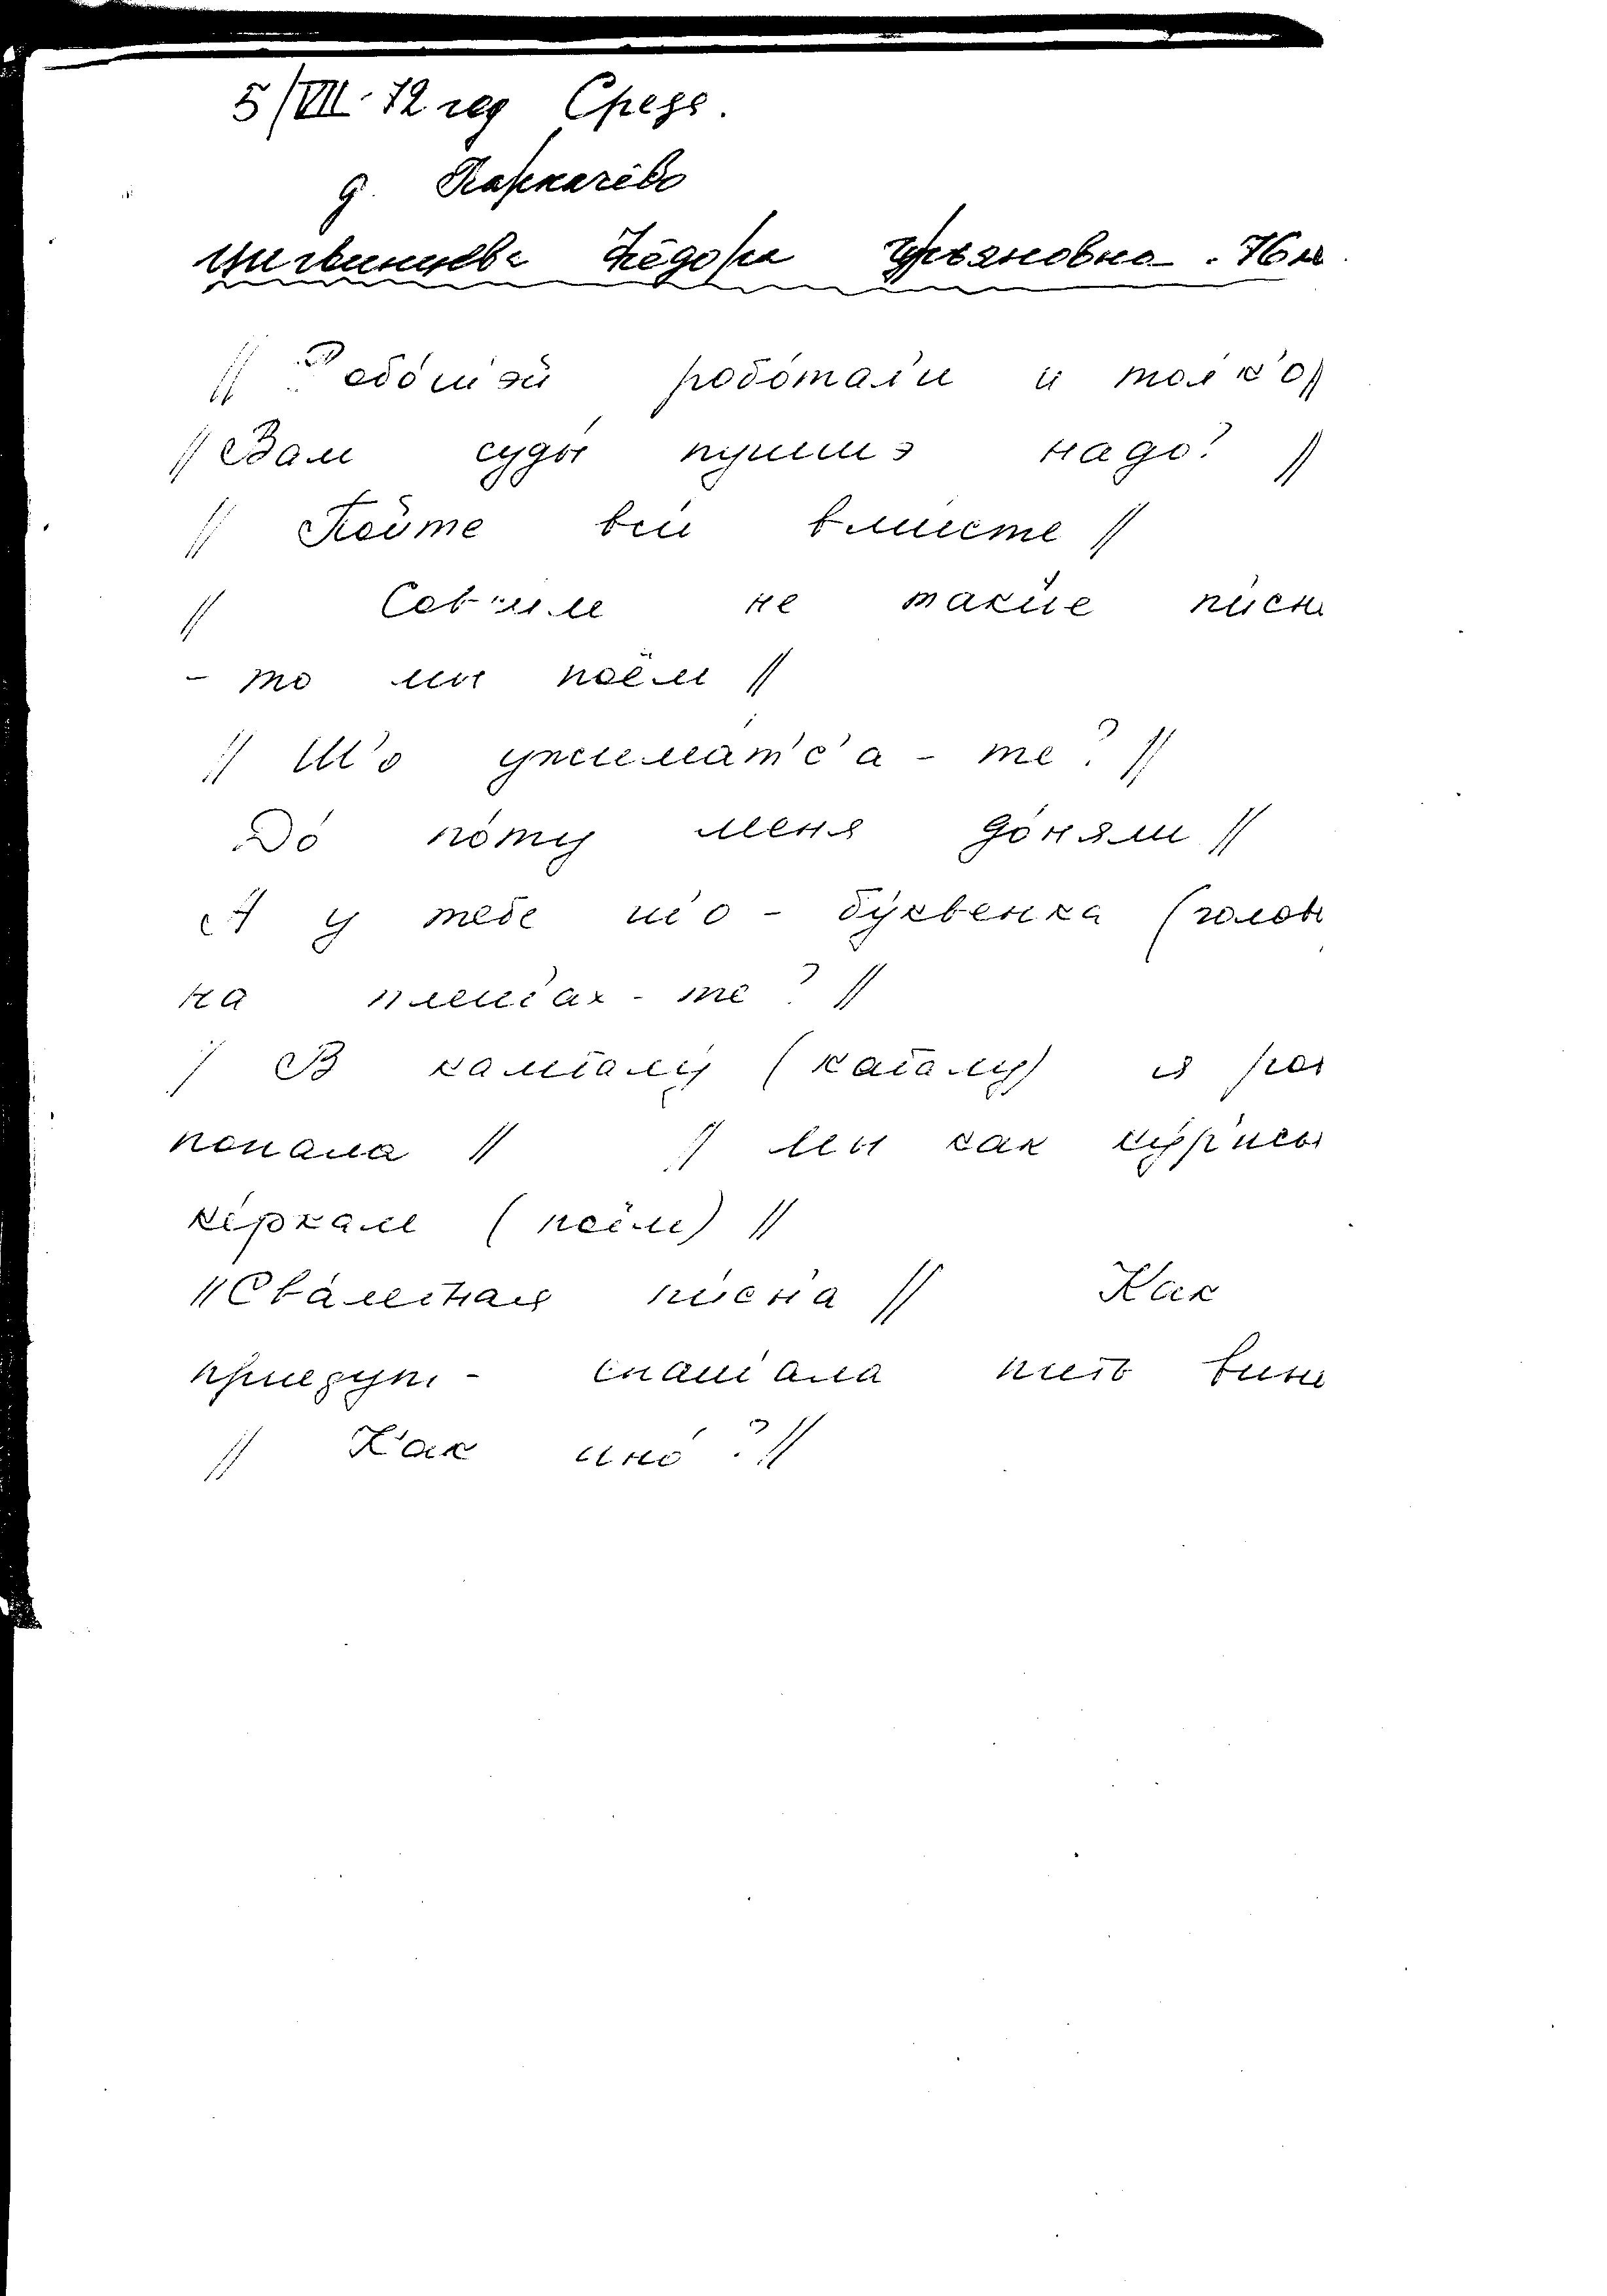 5/VII-72 год Среда.
д. Паркачёво
Цигвинцева Федора Ульяновна. 76 л.
// Робо́ш'эй робо́тал'и и тол'к'о//
// Вам суды́ пушшэ надо? //
// По́йте вси вми́сте //
// Совси́м не таки́е писн
- то мы поём //
// Ш'о ужима́т'с'а - те? //
До́ поту меня до́няли //
А у тебе ш'о - бу́квенка (голов
на плеш'ах - те? //
/ В камталу́ (каталу) я раз
попала // // Мы как ку́рисы
ке́ркам (поём) //
// Сва́дебная пи́сн'а // Как
приедут - спаш'ала пить вин
// Как ино́? //